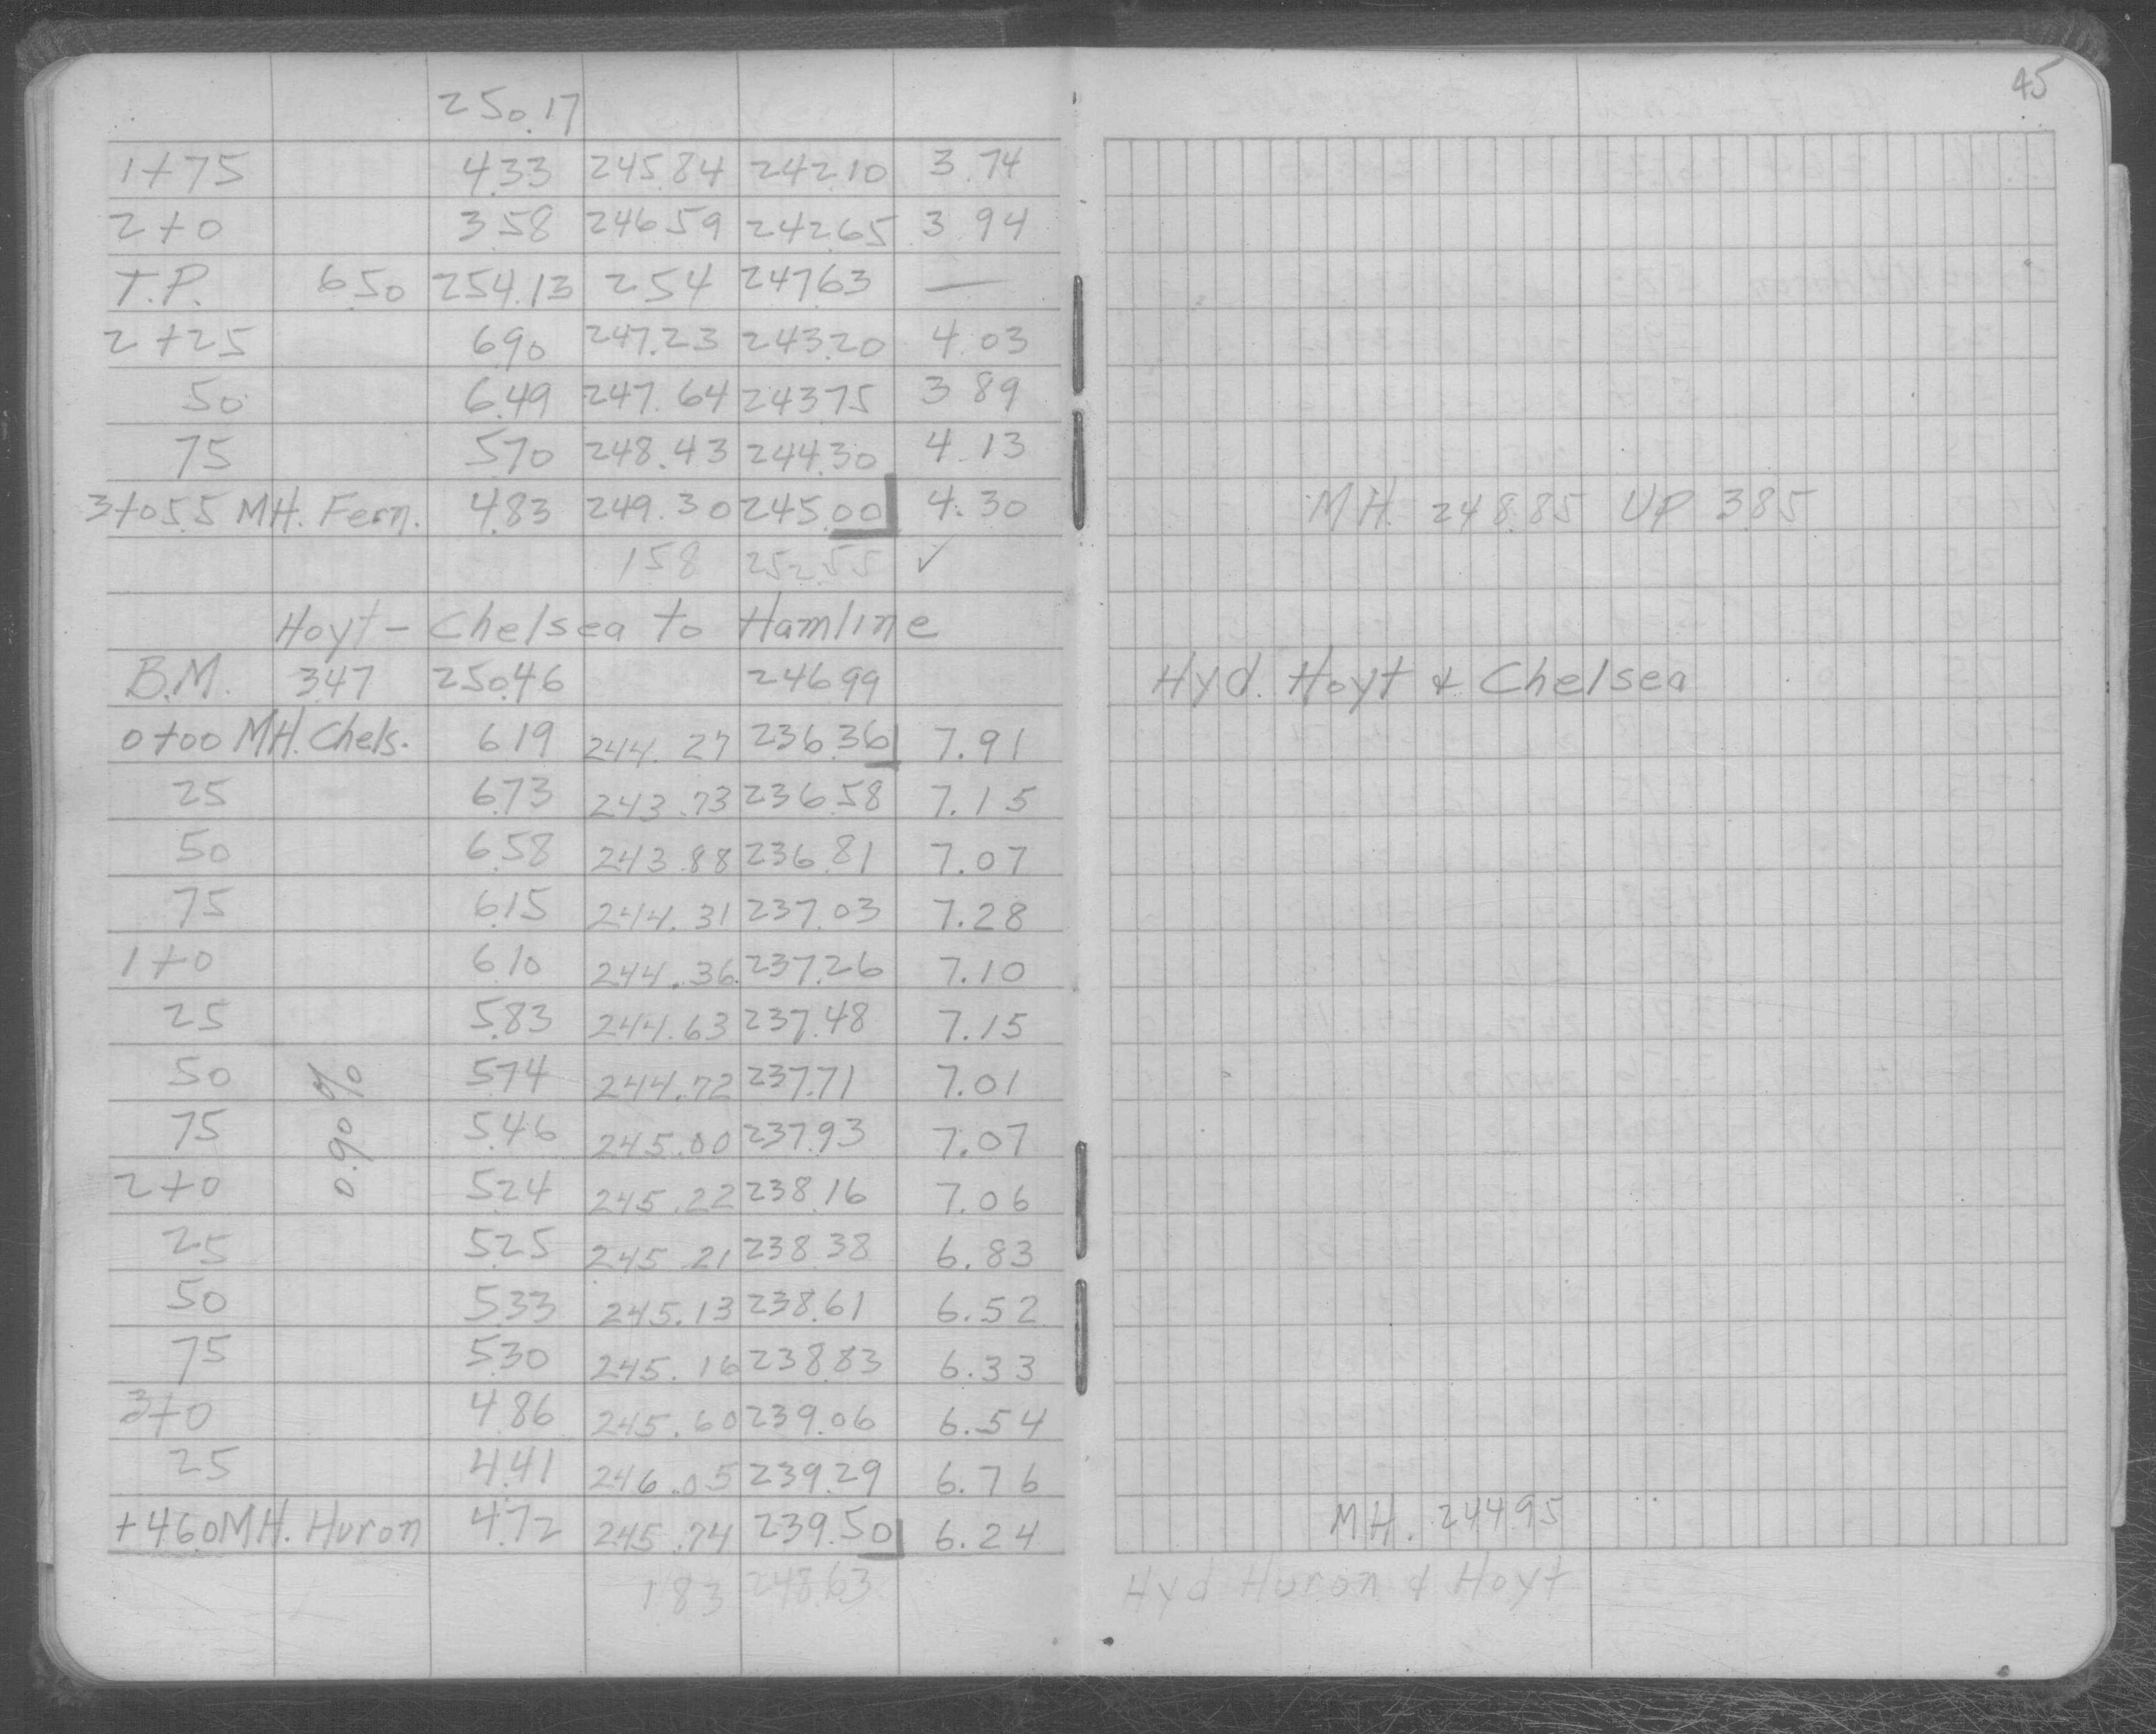 45
250.17
1+75 4.33 245.84 242.10 3.74
2+0 3.58 246.59 242.65 3.94
T.P. 6.50 254.13 2.54 247.63 —
2+25 6.90 247.23 243.20 4.03
50 6.49 247.64 243.75 3.89
75 5.70 248.43 244.30 4.13
3+05.5 MH. Fern. 4.83 249.30 245.00 4.30 MH. 248.85 UP 3.85
1.58 252.55 ✓
Hoyt - Chelsea to Hamline
B.M. 3.47 250.46 246.99 Hyd. Hoyt & Chelsea
0+00 MH. Chels. 6.19 244.27 236.36 7.91
25 6.73 243.73 236.58 7.15
50 6.58 243.88 236.81 7.07
75 6.15 244.31 237.03 7.28
1+0 6.10 244.36 237.26 7.10
25 5.83 244.63 237.48 7.15
50 5.74 244.72 237.71 7.01
75 5.46 245.00 237.93 7.07
0.90 %
2+0 5.24 245.22 238.16 7.06
25 5.25 245.21 238.38 6.83
50 5.33 245.13 238.61 6.52
75 5.30 245.16 238.83 6.33
3+0 4.86 245.60 239.06 6.54
25 4.41 246.05 239.29 6.76
+46.0 MH. Huron 4.72 245.74 239.50 6.24 MH. 244.95
1.83 248.63 Hyd Huron & Hoyt